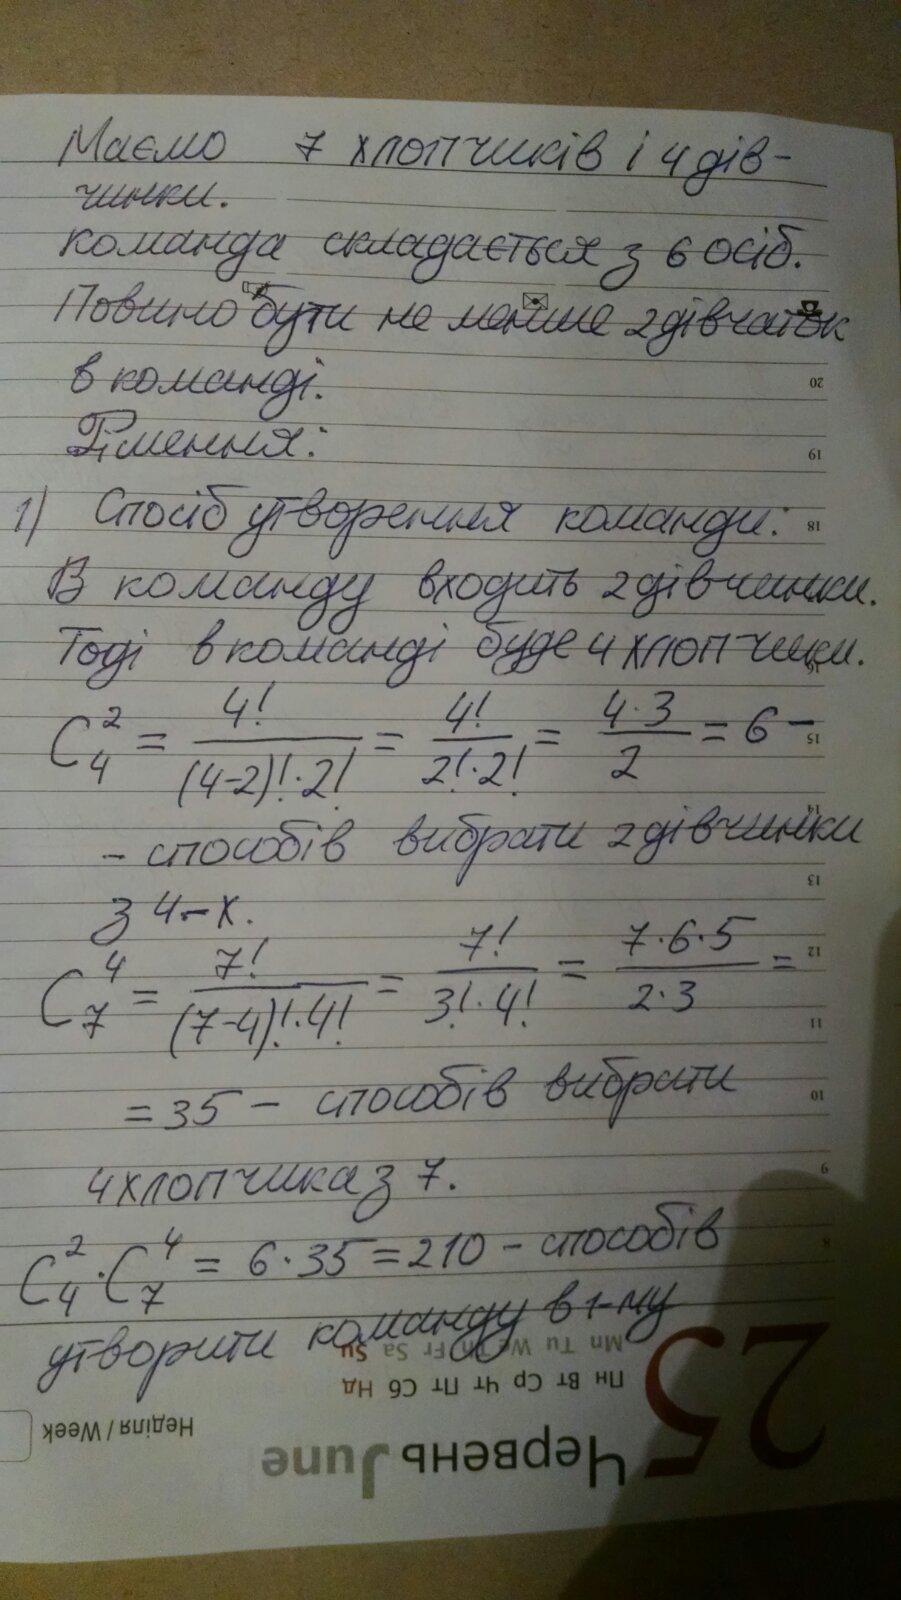 Маємо 7 хлопчиків і 4 дів-
чинки.
команда складається з 6 осіб.
Повино бути не менше 2 дівчаток
в команді.
20
Рішення:
19
1) Спосіб утворення команди:
18
В команду входить 2 дівчинки.
Тоді в команді буде 4 хлопчики.
C₄² = 4!/((4-2)!·2!) = 4!/(2!·2!) = (4·3)/2 = 6 –
15
14
– способів вибрати 2 дівчинки
13
з 4-х.
12
C₇⁴ = 7!/((7-4)!·4!) = 7!/(3!·4!) = (7·6·5)/(2·3) =
11
= 35 – способів вибрати
10
4 хлопчика з 7.
9
8
C₄²·C₇⁴ = 6·35 = 210 – способів
утворити команду в 1-му
Mn Tu We Th Fr Sa Su
Пн Вт Ср Чт Пт Сб Нд
25
Неділя / Week
Червень June